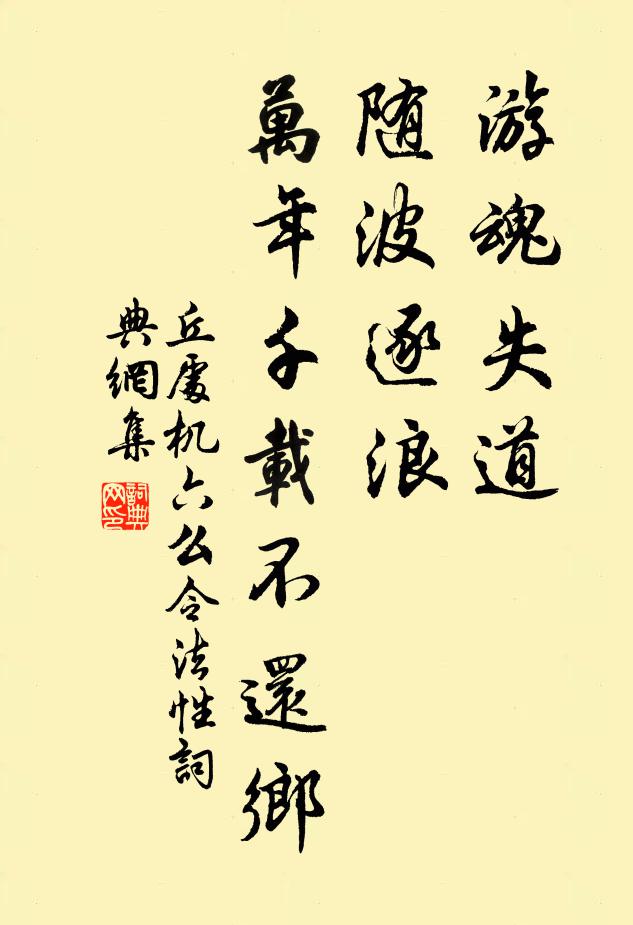 游魂失道
随波逐浪
萬年千載不還鄉
丘處机六么令法性詞
典網集
詞典
网印